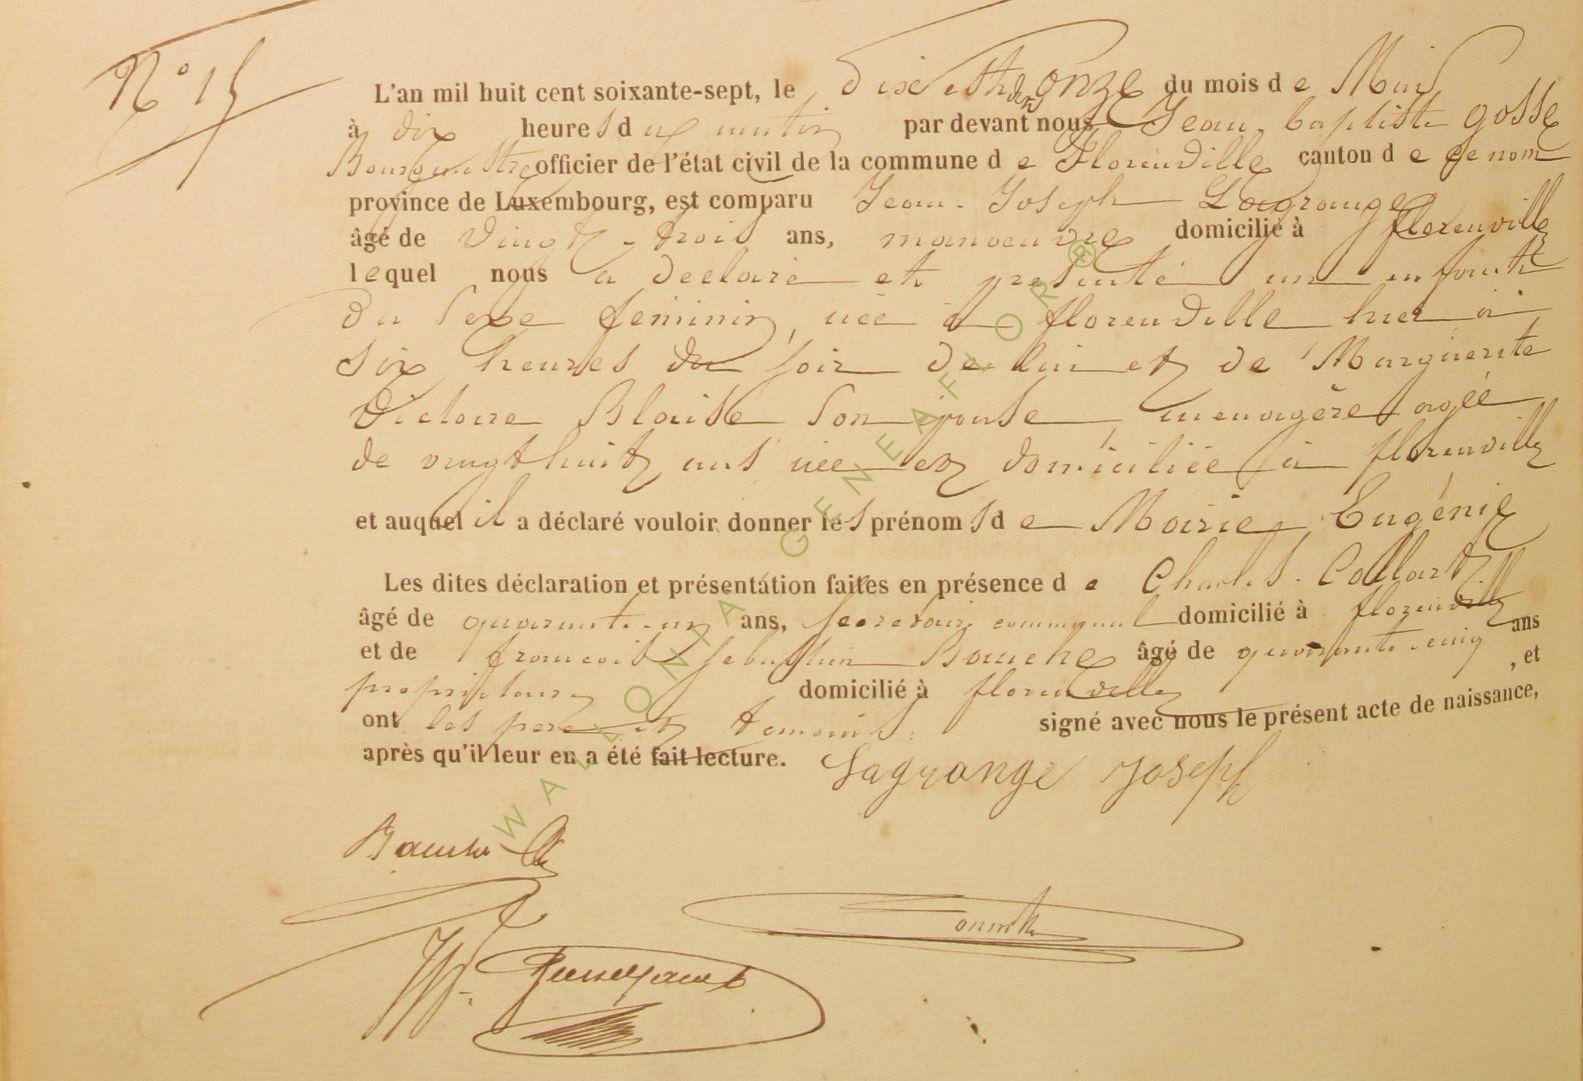 N° 15
L'an mil huit cent soixante-sept, le dix et onze du mois de Mai
à dix heures du matin par devant nous Jean-baptiste gosse
Bourgmestre officier de l'état civil de la commune de Florenville canton de ce nom
province de Luxembourg, est comparu Jean-Joseph Lagrange
âgé de vingt-trois ans, manoeuvre domicilié à florenville
lequel nous a déclaré et présenté un enfant
du sexe féminin, née à florenville hier à
six heures du soir de lui et de Marguerite
Victoire Blaise son épouse ménagère agée
de vingt huit ans née et domiciliée à florenville
et auquel il a déclaré vouloir donner les prénoms de Marie Eugénie
Les dites déclaration et présentation faites en présence de Charles Collard
âgé de quarante-un ans, secretaire communal domicilié à florenville
et de francois Sebastien Bauche âgé de quarante cinq ans
propriétaire domicilié à florenville , et
ont les père et témoins signé avec nous le présent acte de naissance,
après qu'il leur en a été fait lecture. Lagrange Joseph
Bauche
WALLONIA GENEAFLOR ®